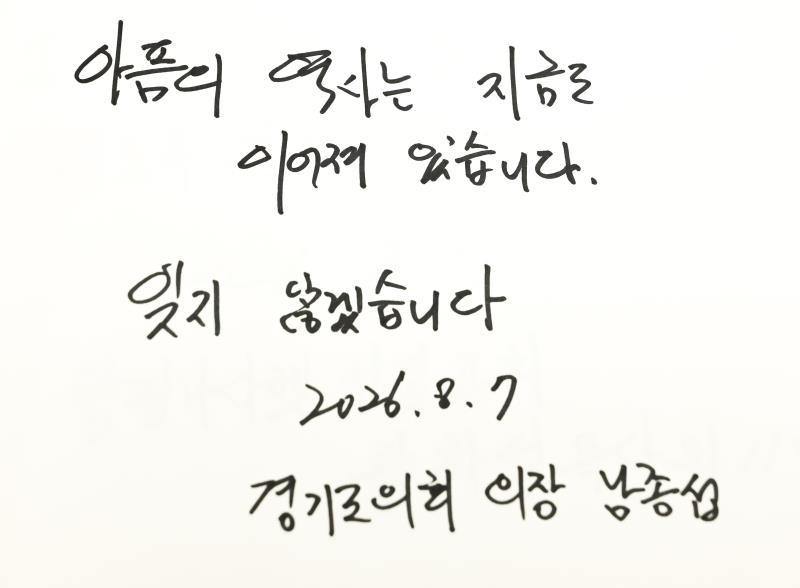 아픔의 역사는 지금도
이어져 있습니다.
잊지 않겠습니다
2026.8.7
경기도의회 의장 남종섭